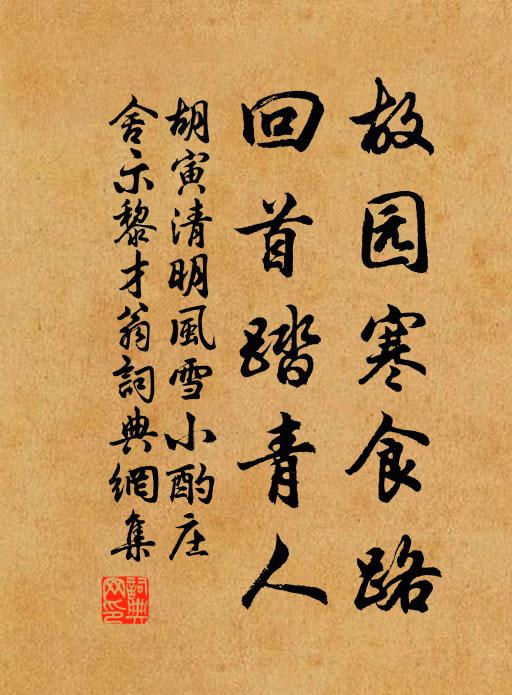 故园寒食路
回首踏青人
胡寅清明風雪小酌庄
舍示黎才翁詞典網集
詞典
网印